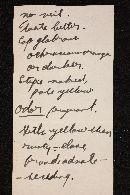 no veil.
Taste bitter.
Cap glabrous
ochraceous-orange
or darker.
Stipe naked,
pale yellow
Odor pungent.
Gills yellow then
rusty-
broad; adnate-